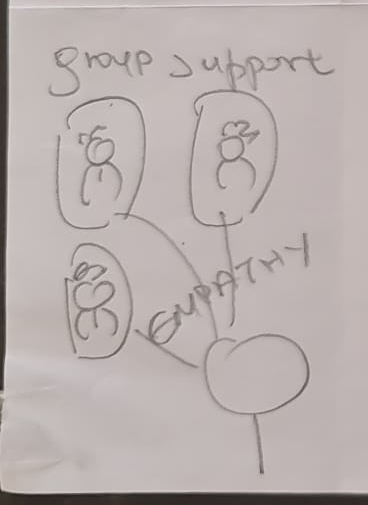 group support
EMPATHY